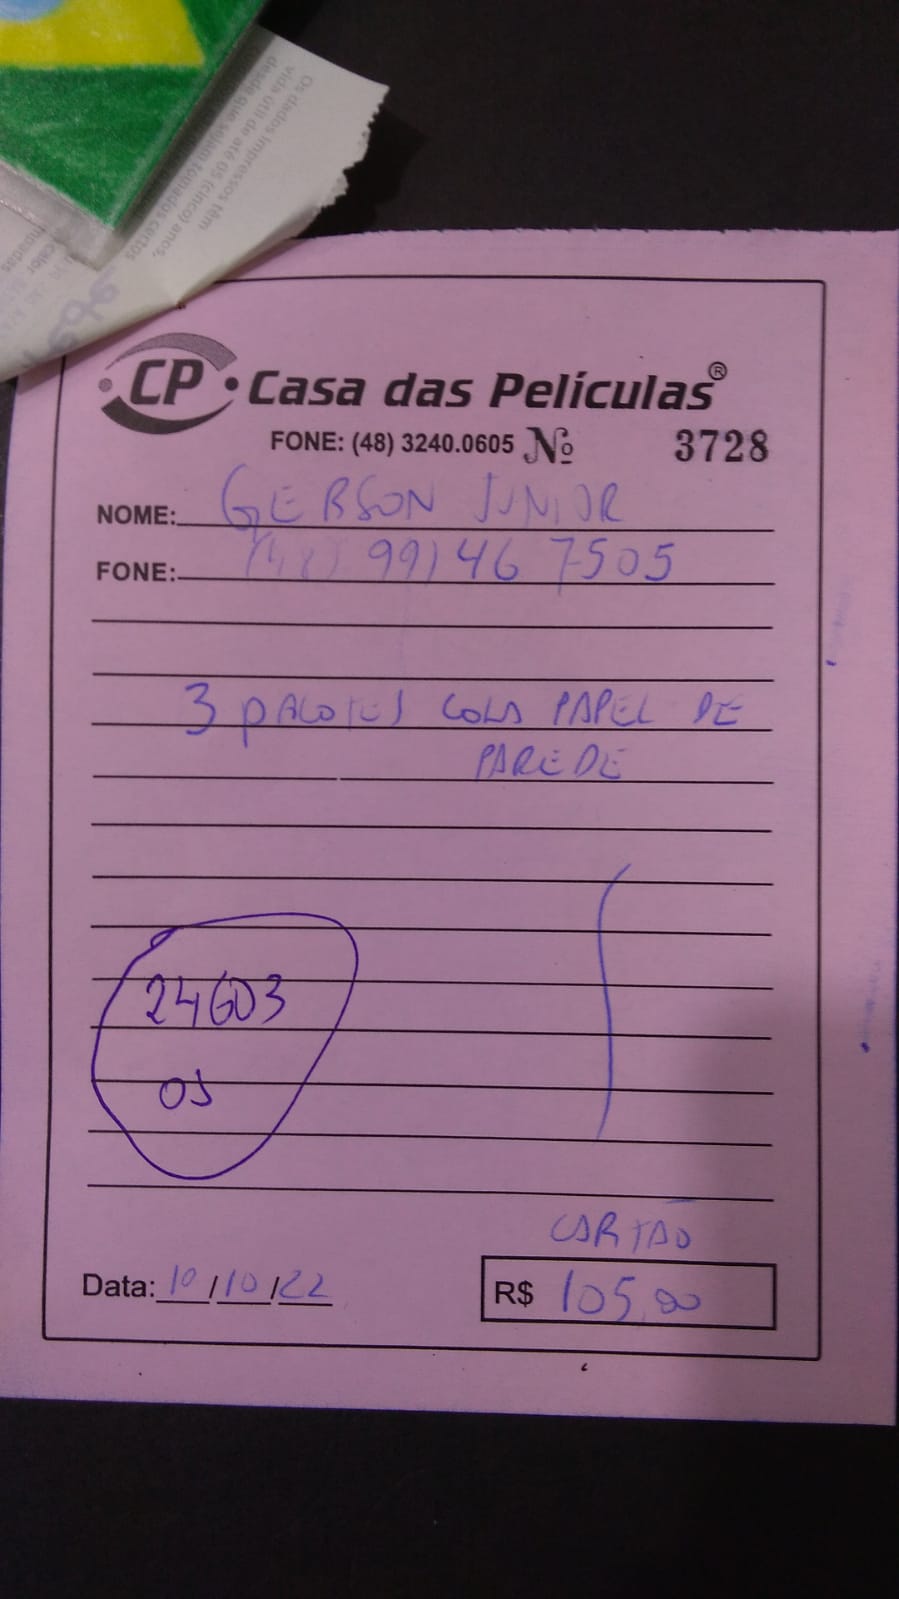 Os dados impressos têm
vida útil de até 05 (cinco) anos,
desde que sejam tomados certos
CP Casa das Películas®
FONE: (48) 3240.0605 Nº 3728
NOME: GERSON JUNIOR
FONE: (48) 99146 7505
3 PACOTES COLA PAPEL DE
PAREDE
24603
OS
CARTÃO
Data: 10/10/22 R$ 105,00